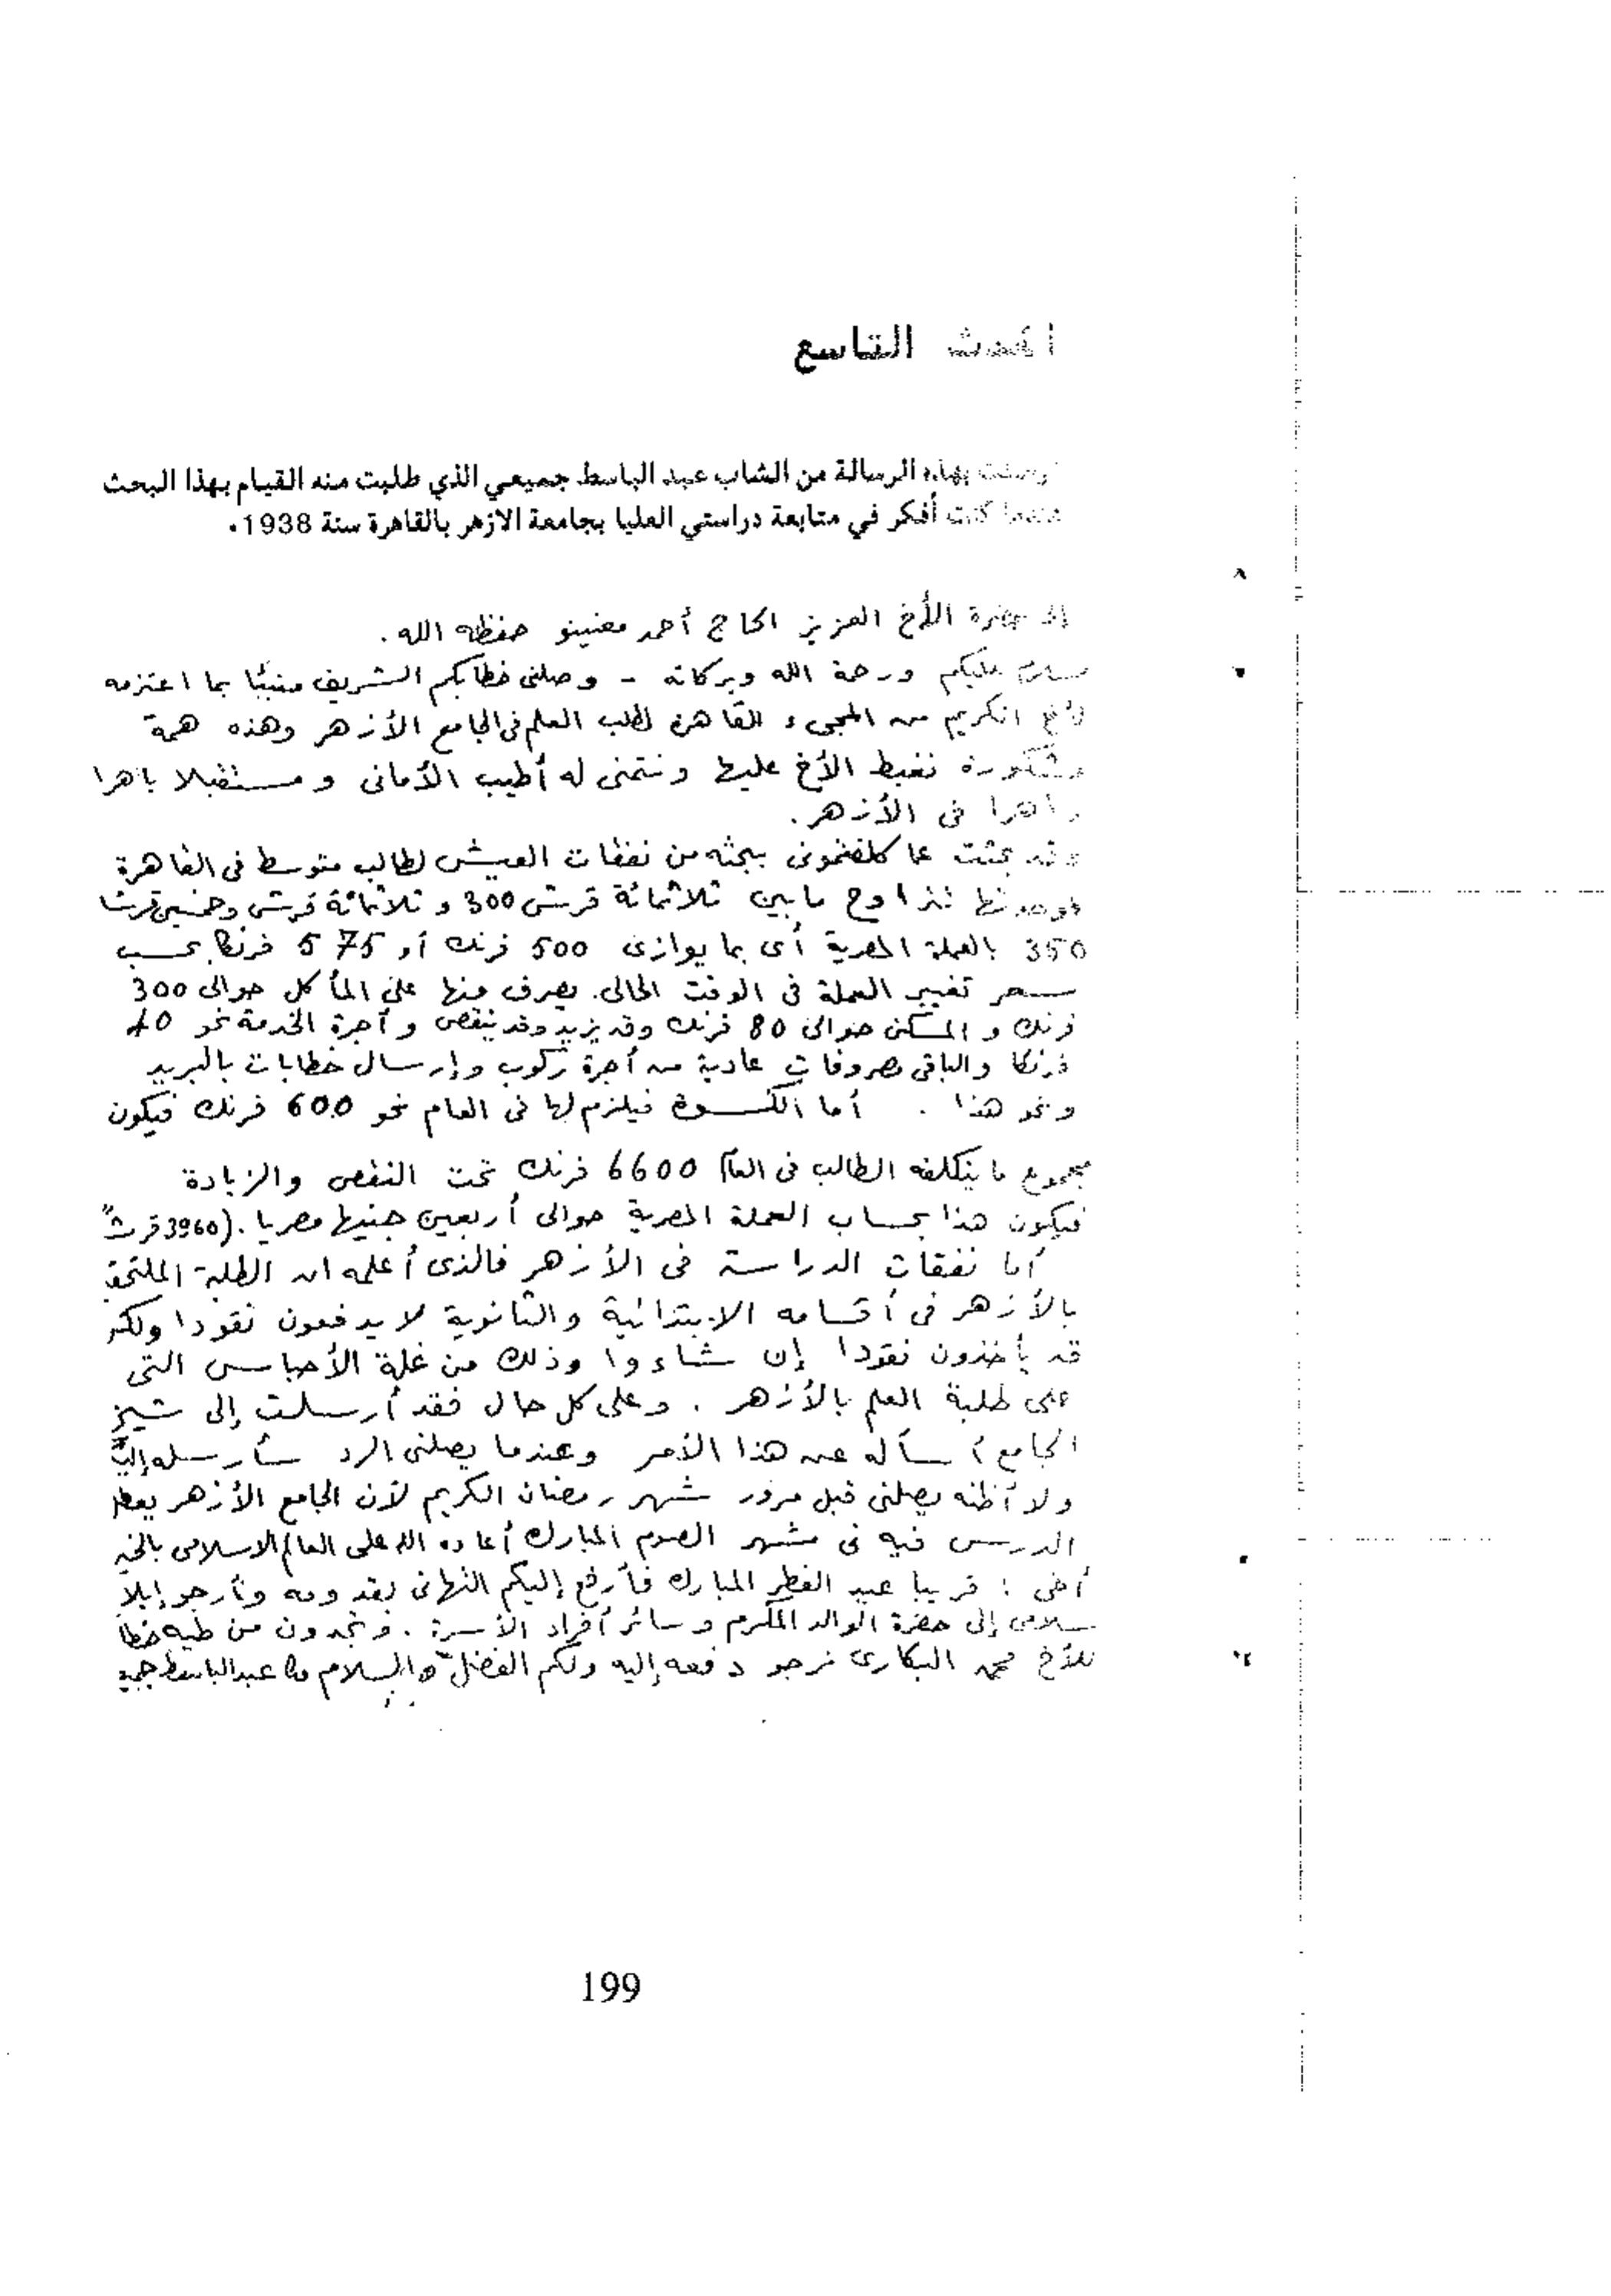 التاسع
بهذه الرسالة من الشاب عبد الباسط جميعي الذي طلبت منه القيام بهذا البحث
عندما كنت أفكر في متابعة دراستي العليا بجامعة الازهر بالقاهرة سنة 1938.
حضرة الأخ العزيز الحاج أحمد معنينو حفظه الله .
سلام عليكم ورحمة الله وبركاته - وصلنى خطابكم الشريف منبئا بما اعتزمه
الأخ الكريم من المجىء للقاهرة لطلب العلم فى الجامع الأزهر وهذه همة
مشكورة نغبط الأخ عليها ونتمنى له أطيب الأمانى ومستقبلا باهرا
زاهرا فى الأزهر .
وقد بحثت عما كلفتمونى ببحثه من نفقات العيش لطالب متوسط فى القاهرة
فوجدتها تتراوح مابين ثلاثمائة قرش 300 وثلاثمائة قرش وخمسين قرشا
350 بالعملة المصرية أى بما يوازى 500 فرنك أو 575 فرنكا بحسب
سعر تغيير العملة فى الوقت الحالى . يصرف منها على المأكل حوالى 300
فرنك والمسكن حوالى 80 فرنك وقد يزيد وقد ينقص وأجرة الخدمة نحو 40
فرنكا والباقى مصروفات عادية من أجرة ركوب وإرسال خطابات بالبريد
ونحو هذا . أما الكسوة فيلزم لها فى العام نحو 600 فرنك فيكون
مجموع ما يتكلفه الطالب فى العام 6600 فرنك تحت النقص والزيادة
فيكون هذا بحساب العملة المصرية حوالى أربعين جنيها مصريا . (3960 قرشاً
أما نفقات الدراسة فى الأزهر فالذى أعلمه ان الطلبة
بالأزهر فى أقسامه الابتدائية والثانوية لا يدفعون نقودا
قد يأخذون نقودا إن شاءوا وذلك من غلة الأحباس التى
على طلبة العلم بالأزهر . وعلى كل حال فقد أرسلت إلى شيخ
الجامع أسأله عن هذا الأمر وعندما يصلنى الرد سأرسله
ولا أظنه يصلنى قبل مرور شهر رمضان الكريم لأن الجامع الأزهر
الدرس فيه فى شهر الصوم المبارك أعاده الله على العالم الاسلامى
أخى : قريبا عيد الفطر المبارك فأرفع إليكم التهانى بقدومه وأرجو
سلامى إلى حضرة الوالد المكرم وسائر أفراد الأسرة . وتجدون من طيه
للأخ محمد البكارى نرجو دفعه إليه ولكم الفضل والسلام عبد الباسط
199